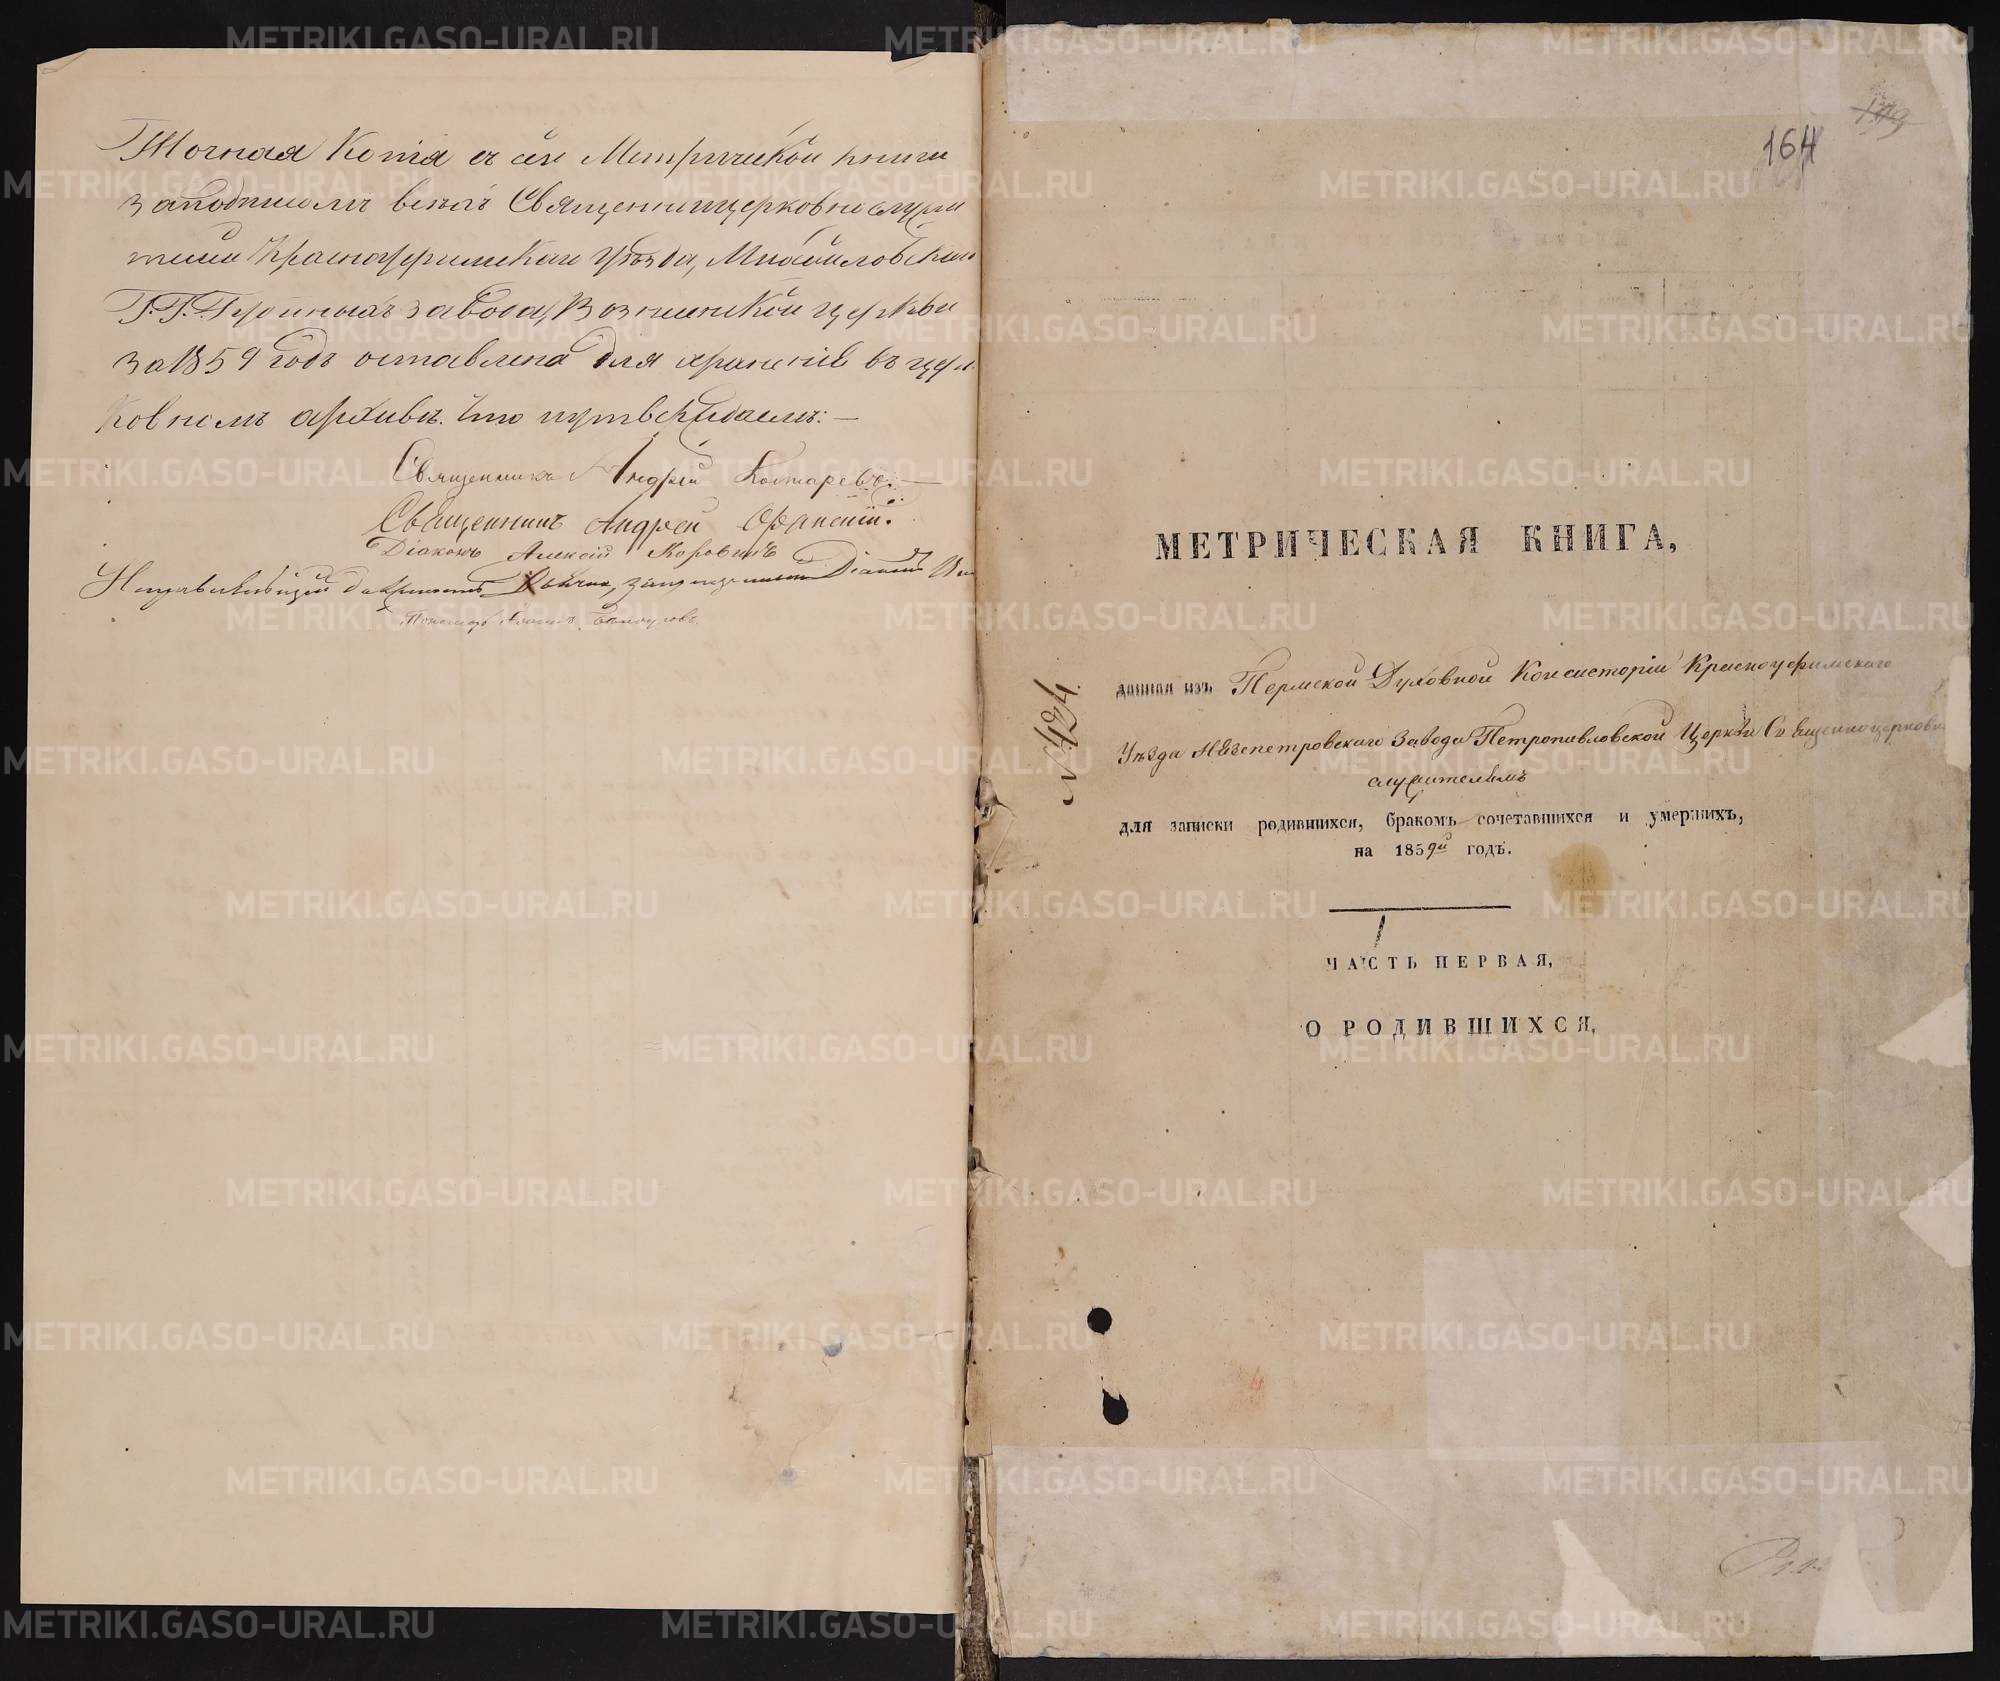 Точная Копія съ сей Метрической книги
за подписомъ всѣхъ Священноцерковнослужи
телей Красноуфимскаго уѣзда, Михайловскаго
Г.Г. Губиныхъ завода, Вознесенской церкви
за 1859 годъ оставлена для храненія въ цер
ковномъ архивѣ. Что и утверждаемъ:—
Священникъ Андрей Костаревъ
Священникъ Андрей
Діаконъ Алексій Коровинъ
Исправляющій должность запрещенный Діаконъ
Пономарь
164
МЕТРИЧЕСКАЯ КНИГА,
№ 424.
данная изъ Пермской Духовной Консисторіи Красноуфимскаго
Уѣзда Нязепетровскаго Завода Петропавловской Церкви Священноцерковно
служителямъ
для записки родившихся, бракомъ сочетавшихся и умершихъ,
на 1859й годъ.
ЧАСТЬ ПЕРВАЯ,
О РОДИВШИХСЯ,
METRIKI.GASO-URAL.RU